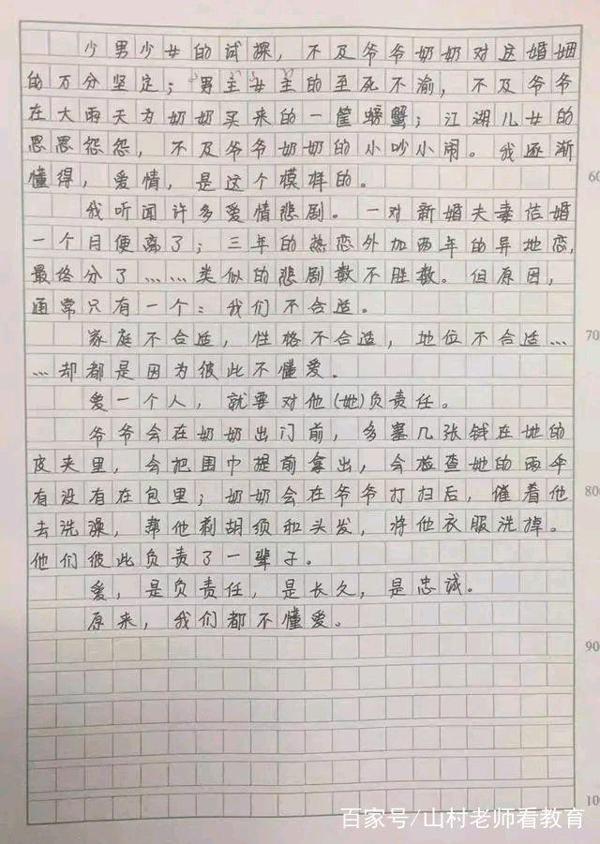 少男少女的试探，不及爷爷奶奶对这婚姻
的万分坚定；男主女主的至死不渝，不及爷爷
在大雨天为奶奶买来的一筐螃蟹；江湖儿女的
恩恩怨怨，不及爷爷奶奶的小吵小闹。我逐渐
懂得，爱情，是这个模样的。
60
我听闻许多爱情悲剧。一对新婚夫妻结婚
一个月便离了；三年的热恋外加两年的异地恋，
最终分了……类似的悲剧数不胜数。但原因，
通常只有一个：我们不合适。
家庭不合适，性格不合适，地位不合适…
70
…却都是因为彼此不懂爱。
爱一个人，就要对他(她)负责任。
爷爷会在奶奶出门前，多塞几张钱在她的
皮夹里，会把围巾提前拿出，会检查她的雨伞
有没有在包里；奶奶会在爷爷打扫后，催着他
800
去洗澡，帮他剃胡须和头发，将他衣服洗掉。
他们彼此负责了一辈子。
爱，是负责任，是长久，是忠诚。
原来，我们都不懂爱。
90
10
百家号/山村老师看教育